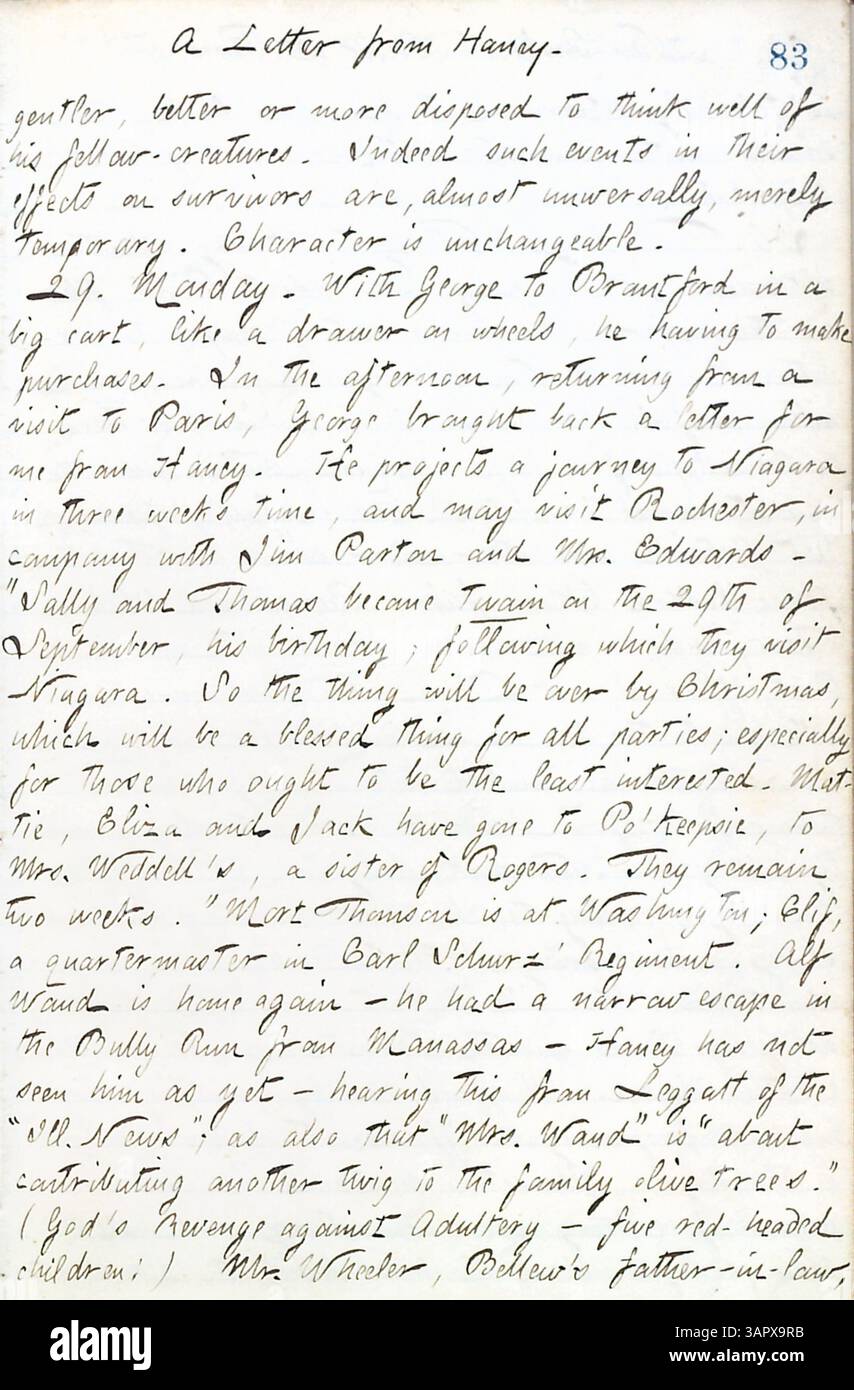 A Letter from Haney.
83
gentler, better or more disposed to think well of
his fellow-creatures. Indeed such events in their
effects on survivors are, almost universally, merely
temporary. Character is unchangeable.
29. Monday. With George to Brantford in a
big cart, like a drawer on wheels, he having to make
purchases. In the afternoon, returning from a
visit to Paris, George brought back a letter for
me from Haney. He projects a journey to Niagara
in three weeks time, and may visit Rochester, in
company with Jim Parton and Mrs. Edwards.
"Sally and Thomas become twain on the 29th of
September, his birthday; following which they visit
Niagara. So the thing will be over by Christmas,
which will be a blessed thing for all parties; especially
for those who ought to be the least interested. Mat-
tie, Eliza and Jack have gone to Po'keepsie, to
Mrs. Weddell's, a sister of Rogers. They remain
two weeks. "Mort Thomson is at Washington; Clif,
a quartermaster in Carl Schurz' Regiment. Alf
Waud is home again – he had a narrow escape in
the Bully Run from Manassas – Haney has not
seen him as yet – hearing this from Leggatt of the
"Ill. News"; as also that "Mrs. Waud" is "about
contributing another twig to the family olive trees."
(God's Revenge against Adultery – five red-headed
children!) Mr. Wheeler, Bellew's father-in-law,
alamy
Image ID: 3APX9RB
www.alamy.com